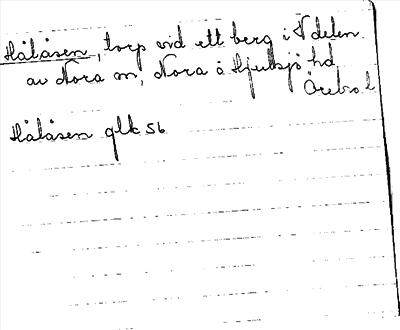 Hålåsen, torp vid ett berg i N delen
av Nora sn, Nora o Hjulsjö hd
Örebro l
Hålåsen glk 56